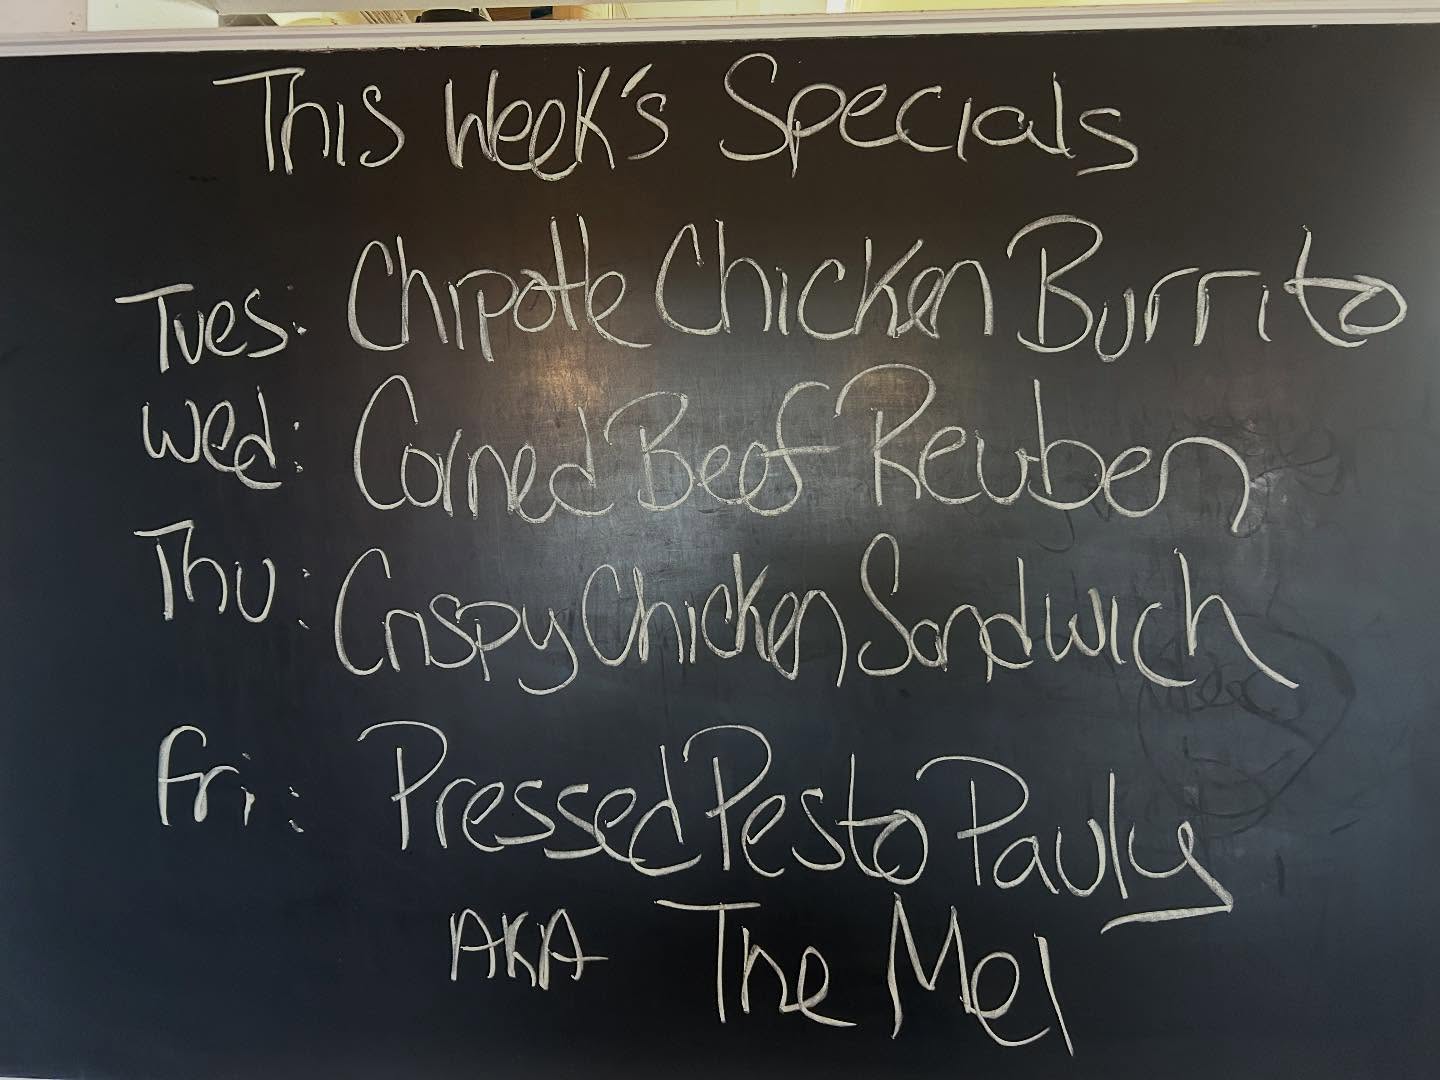 This Week's Specials
Tues: Chipotle Chicken Burrito
Wed: Corned Beef Reuben
Thu: Crispy Chicken Sandwich
Fri: Pressed Pesto Pauly
AKA The Mel